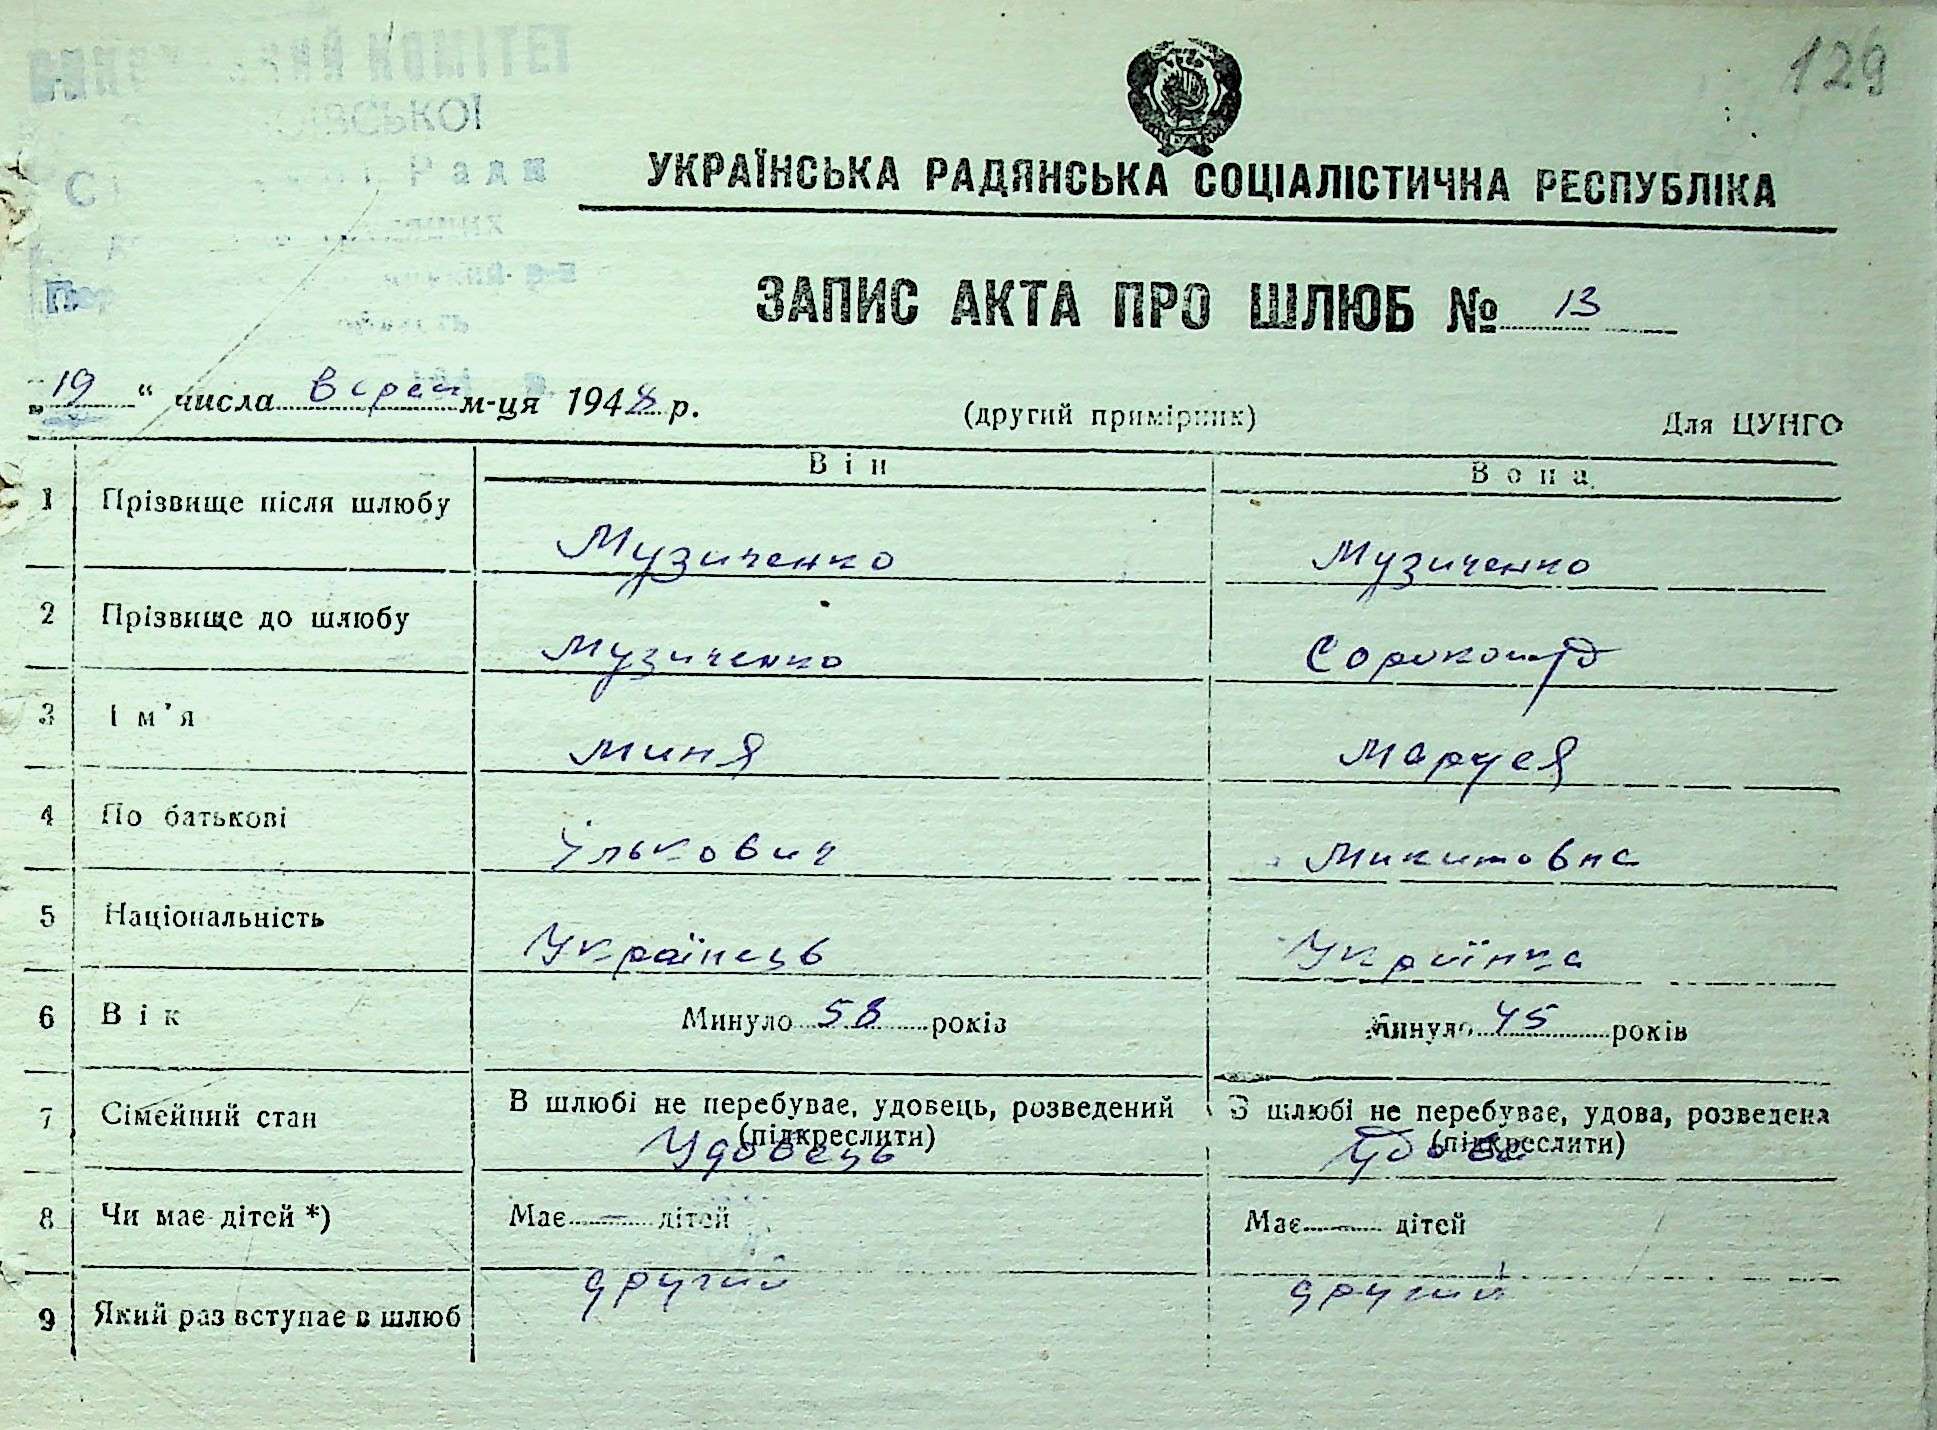 129
КОМІТЕТ
Ради
УКРАЇНСЬКА РАДЯНСЬКА СОЦІАЛІСТИЧНА РЕСПУБЛІКА
ЗАПИС АКТА ПРО ШЛЮБ № 13
„19“ числа верес м-ця 1948 р. (другий примірник) Для ЦУНГО
Він Вона
1 Прізвище після шлюбу Музиченко Музиченко
2 Прізвище до шлюбу Музиченко
3 Ім'я Миня Маруся
4 По батькові Ількович Микитовна
5 Національність Українець Українка
6 Вік Минуло 58 років Минуло 45 років
7 Сімейний стан В шлюбі не перебуває, удовець, розведений В шлюбі не перебуває, удова, розведена
(підкреслити) (підкреслити)
Удовець Удова
8 Чи має дітей *) Має — дітей Має — дітей
9 Який раз вступає в шлюб другий другий